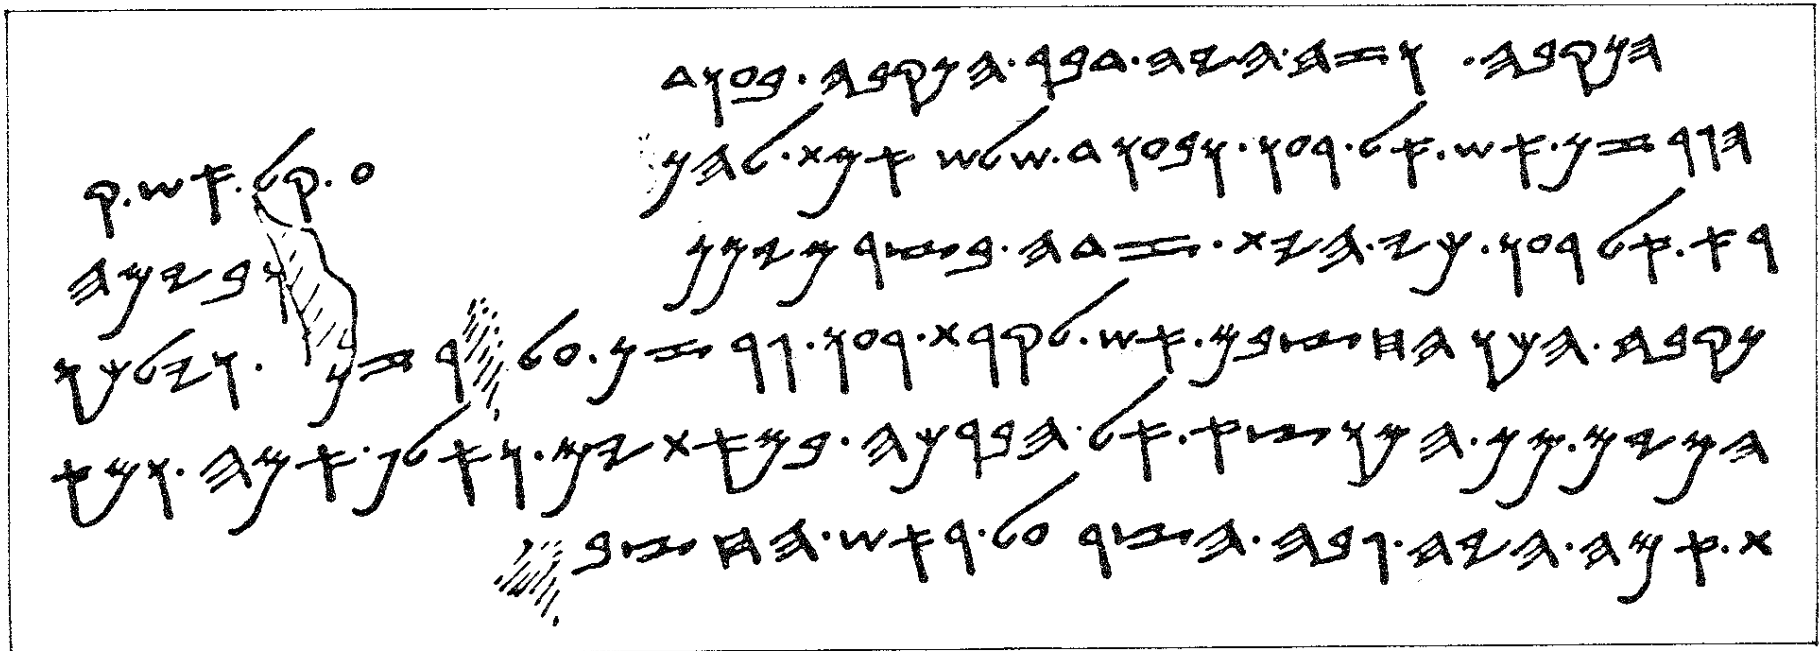 𐤄𐤍𐤒𐤁𐤄. 𐤅𐤆𐤄.𐤄𐤉𐤄.𐤃𐤁𐤓.𐤄𐤍𐤒𐤁𐤄.𐤁𐤏𐤅𐤃
𐤄𐤂𐤓𐤆𐤍.𐤀𐤔.𐤀𐤋.𐤓𐤏𐤅.𐤅𐤁𐤏𐤅𐤃.𐤔𐤋𐤔 𐤀𐤌𐤕.𐤋𐤄𐤍 𐤏.𐤒𐤋.𐤀𐤔.𐤒
𐤓𐤀.𐤀𐤋 𐤓𐤏𐤅.𐤊𐤉.𐤄𐤉𐤕.𐤆𐤃𐤄.𐤁𐤑𐤓 𐤌𐤉𐤌𐤍 𐤅𐤁𐤉𐤌𐤄
𐤍𐤒𐤁𐤄.𐤄𐤊𐤅 𐤄𐤇𐤑𐤁𐤌.𐤀𐤔.𐤋𐤒𐤓𐤕.𐤓𐤏𐤅.𐤂𐤓𐤆𐤍.𐤏𐤋 𐤓𐤆𐤍.𐤅𐤉𐤋𐤊𐤅
𐤄𐤌𐤉𐤌.𐤌𐤍.𐤄𐤌𐤅𐤑𐤀.𐤀𐤋.𐤄𐤁𐤓𐤊𐤄.𐤁𐤌𐤀𐤕𐤉𐤌.𐤅𐤀𐤋𐤐.𐤀𐤌𐤄.𐤅𐤌𐤀
𐤕.𐤀𐤌𐤄.𐤄𐤉𐤄.𐤂𐤁𐤄.𐤄𐤑𐤓 𐤏𐤋.𐤓𐤀𐤔.𐤄𐤇𐤑𐤁